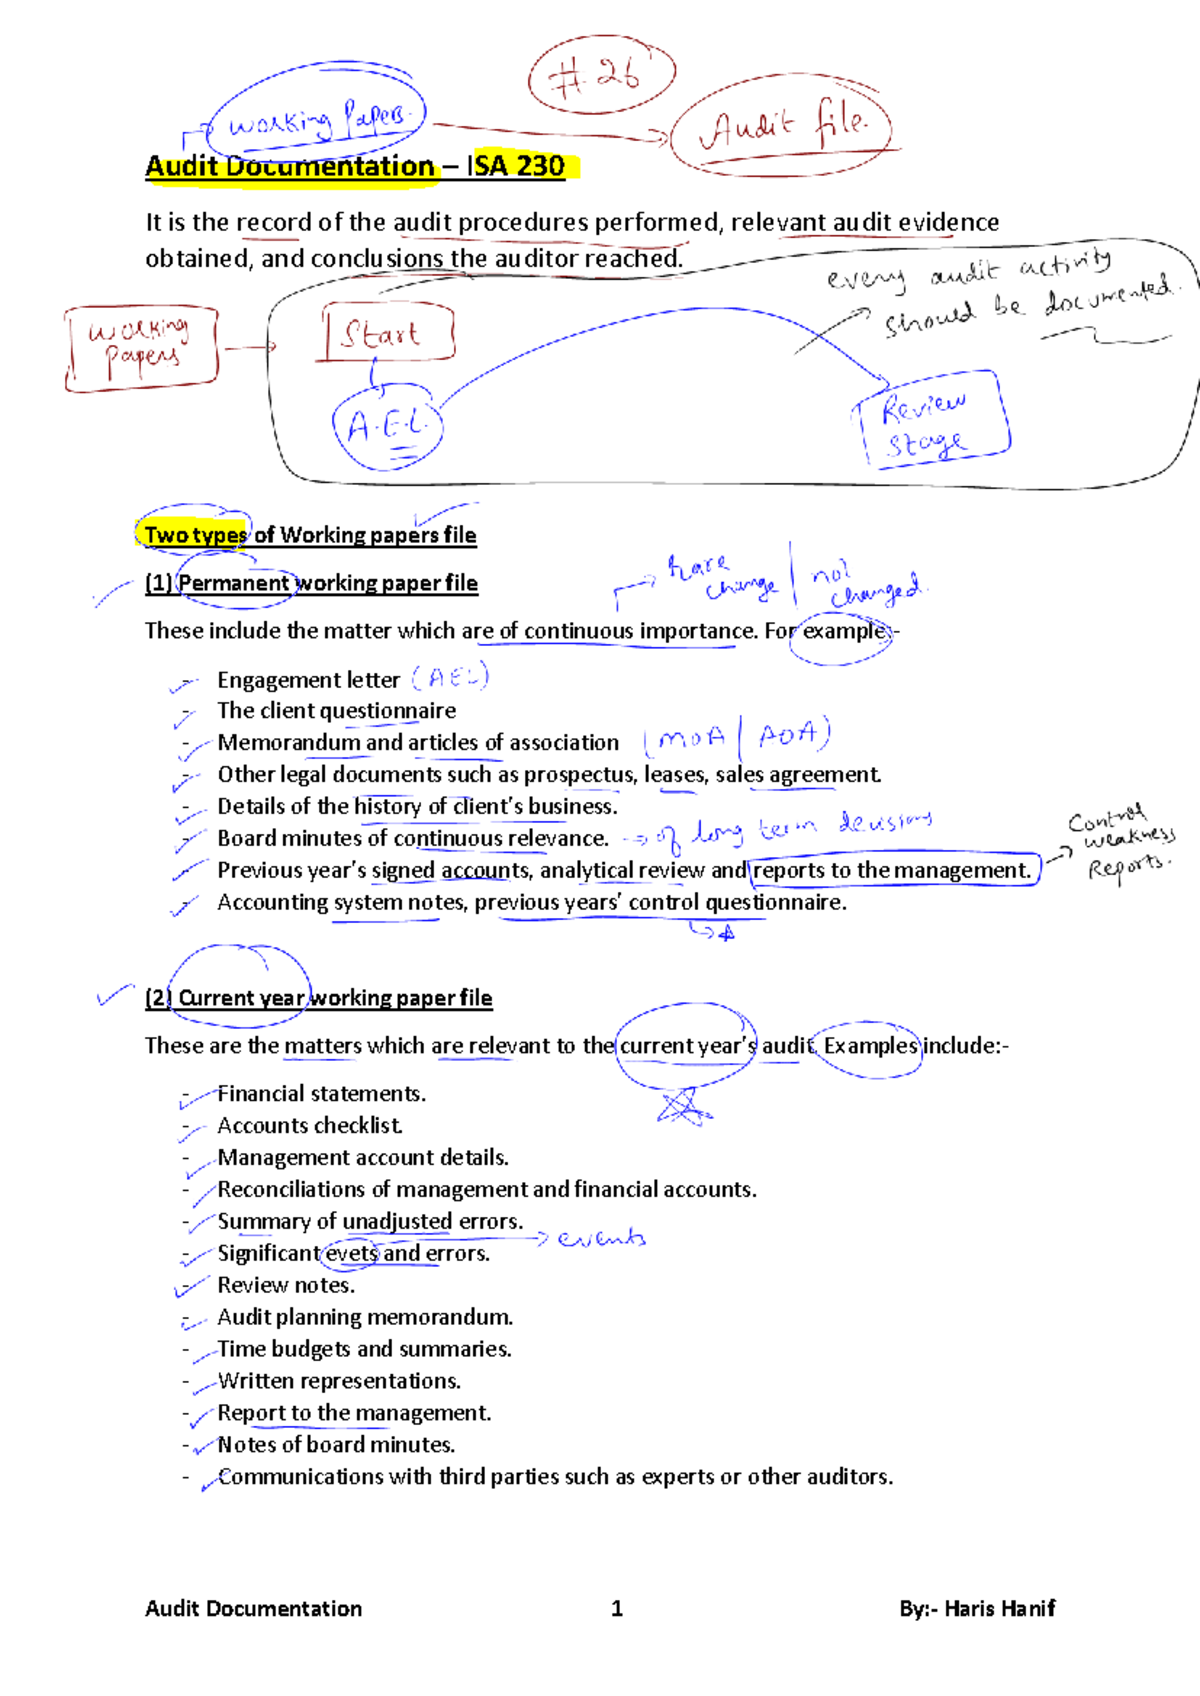 #.26
working Papers.
Audit file.
Audit Documentation – ISA 230
It is the record of the audit procedures performed, relevant audit evidence
obtained, and conclusions the auditor reached.
every audit activity
should be documented.
working
papers
Start
A.E.L.
Review
stage
Two types of Working papers file
(1) Permanent working paper file
rare
change
not
changed.
These include the matter which are of continuous importance. For example:-
- Engagement letter (AEL)
- The client questionnaire
- Memorandum and articles of association (MOA | AOA)
- Other legal documents such as prospectus, leases, sales agreement.
- Details of the history of client's business.
- Board minutes of continuous relevance. → of long term decisions
Control
weakness
Reports.
- Previous year's signed accounts, analytical review and reports to the management.
- Accounting system notes, previous years' control questionnaire.
(2) Current year working paper file
These are the matters which are relevant to the current year's audit. Examples include:-
- Financial statements.
- Accounts checklist.
- Management account details.
- Reconciliations of management and financial accounts.
- Summary of unadjusted errors.
- Significant evets and errors.
→ events
- Review notes.
- Audit planning memorandum.
- Time budgets and summaries.
- Written representations.
- Report to the management.
- Notes of board minutes.
- Communications with third parties such as experts or other auditors.
Audit Documentation 1 By:- Haris Hanif